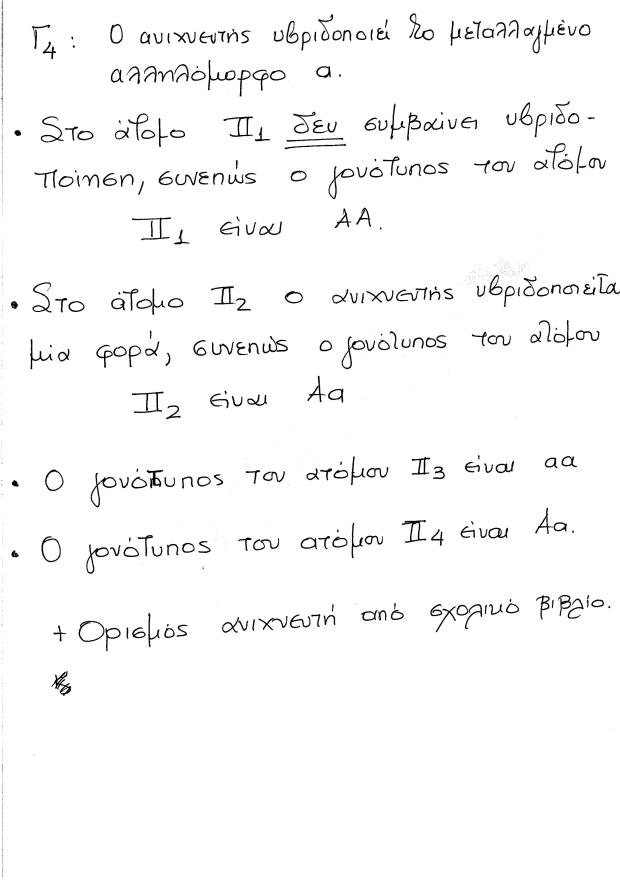 Γ4 : Ο ανιχνευτής υβριδοποιεί το μεταλλαγμένο
αλληλόμορφο α.
• Στο άτομο II1 δεν συμβαίνει υβριδο-
ποίηση, συνεπώς ο γονότυπος του ατόμου
II1 είναι ΑΑ.
• Στο άτομο II2 ο ανιχνευτής υβριδοποιείτα
μία φορά, συνεπώς ο γονότυπος του ατόμου
II2 είναι Αα
• Ο γονότυπος του ατόμου II3 είναι αα
• Ο γονότυπος του ατόμου II4 είναι Αα.
+ Ορισμός ανιχνευτή από σχολικό βιβλίο.